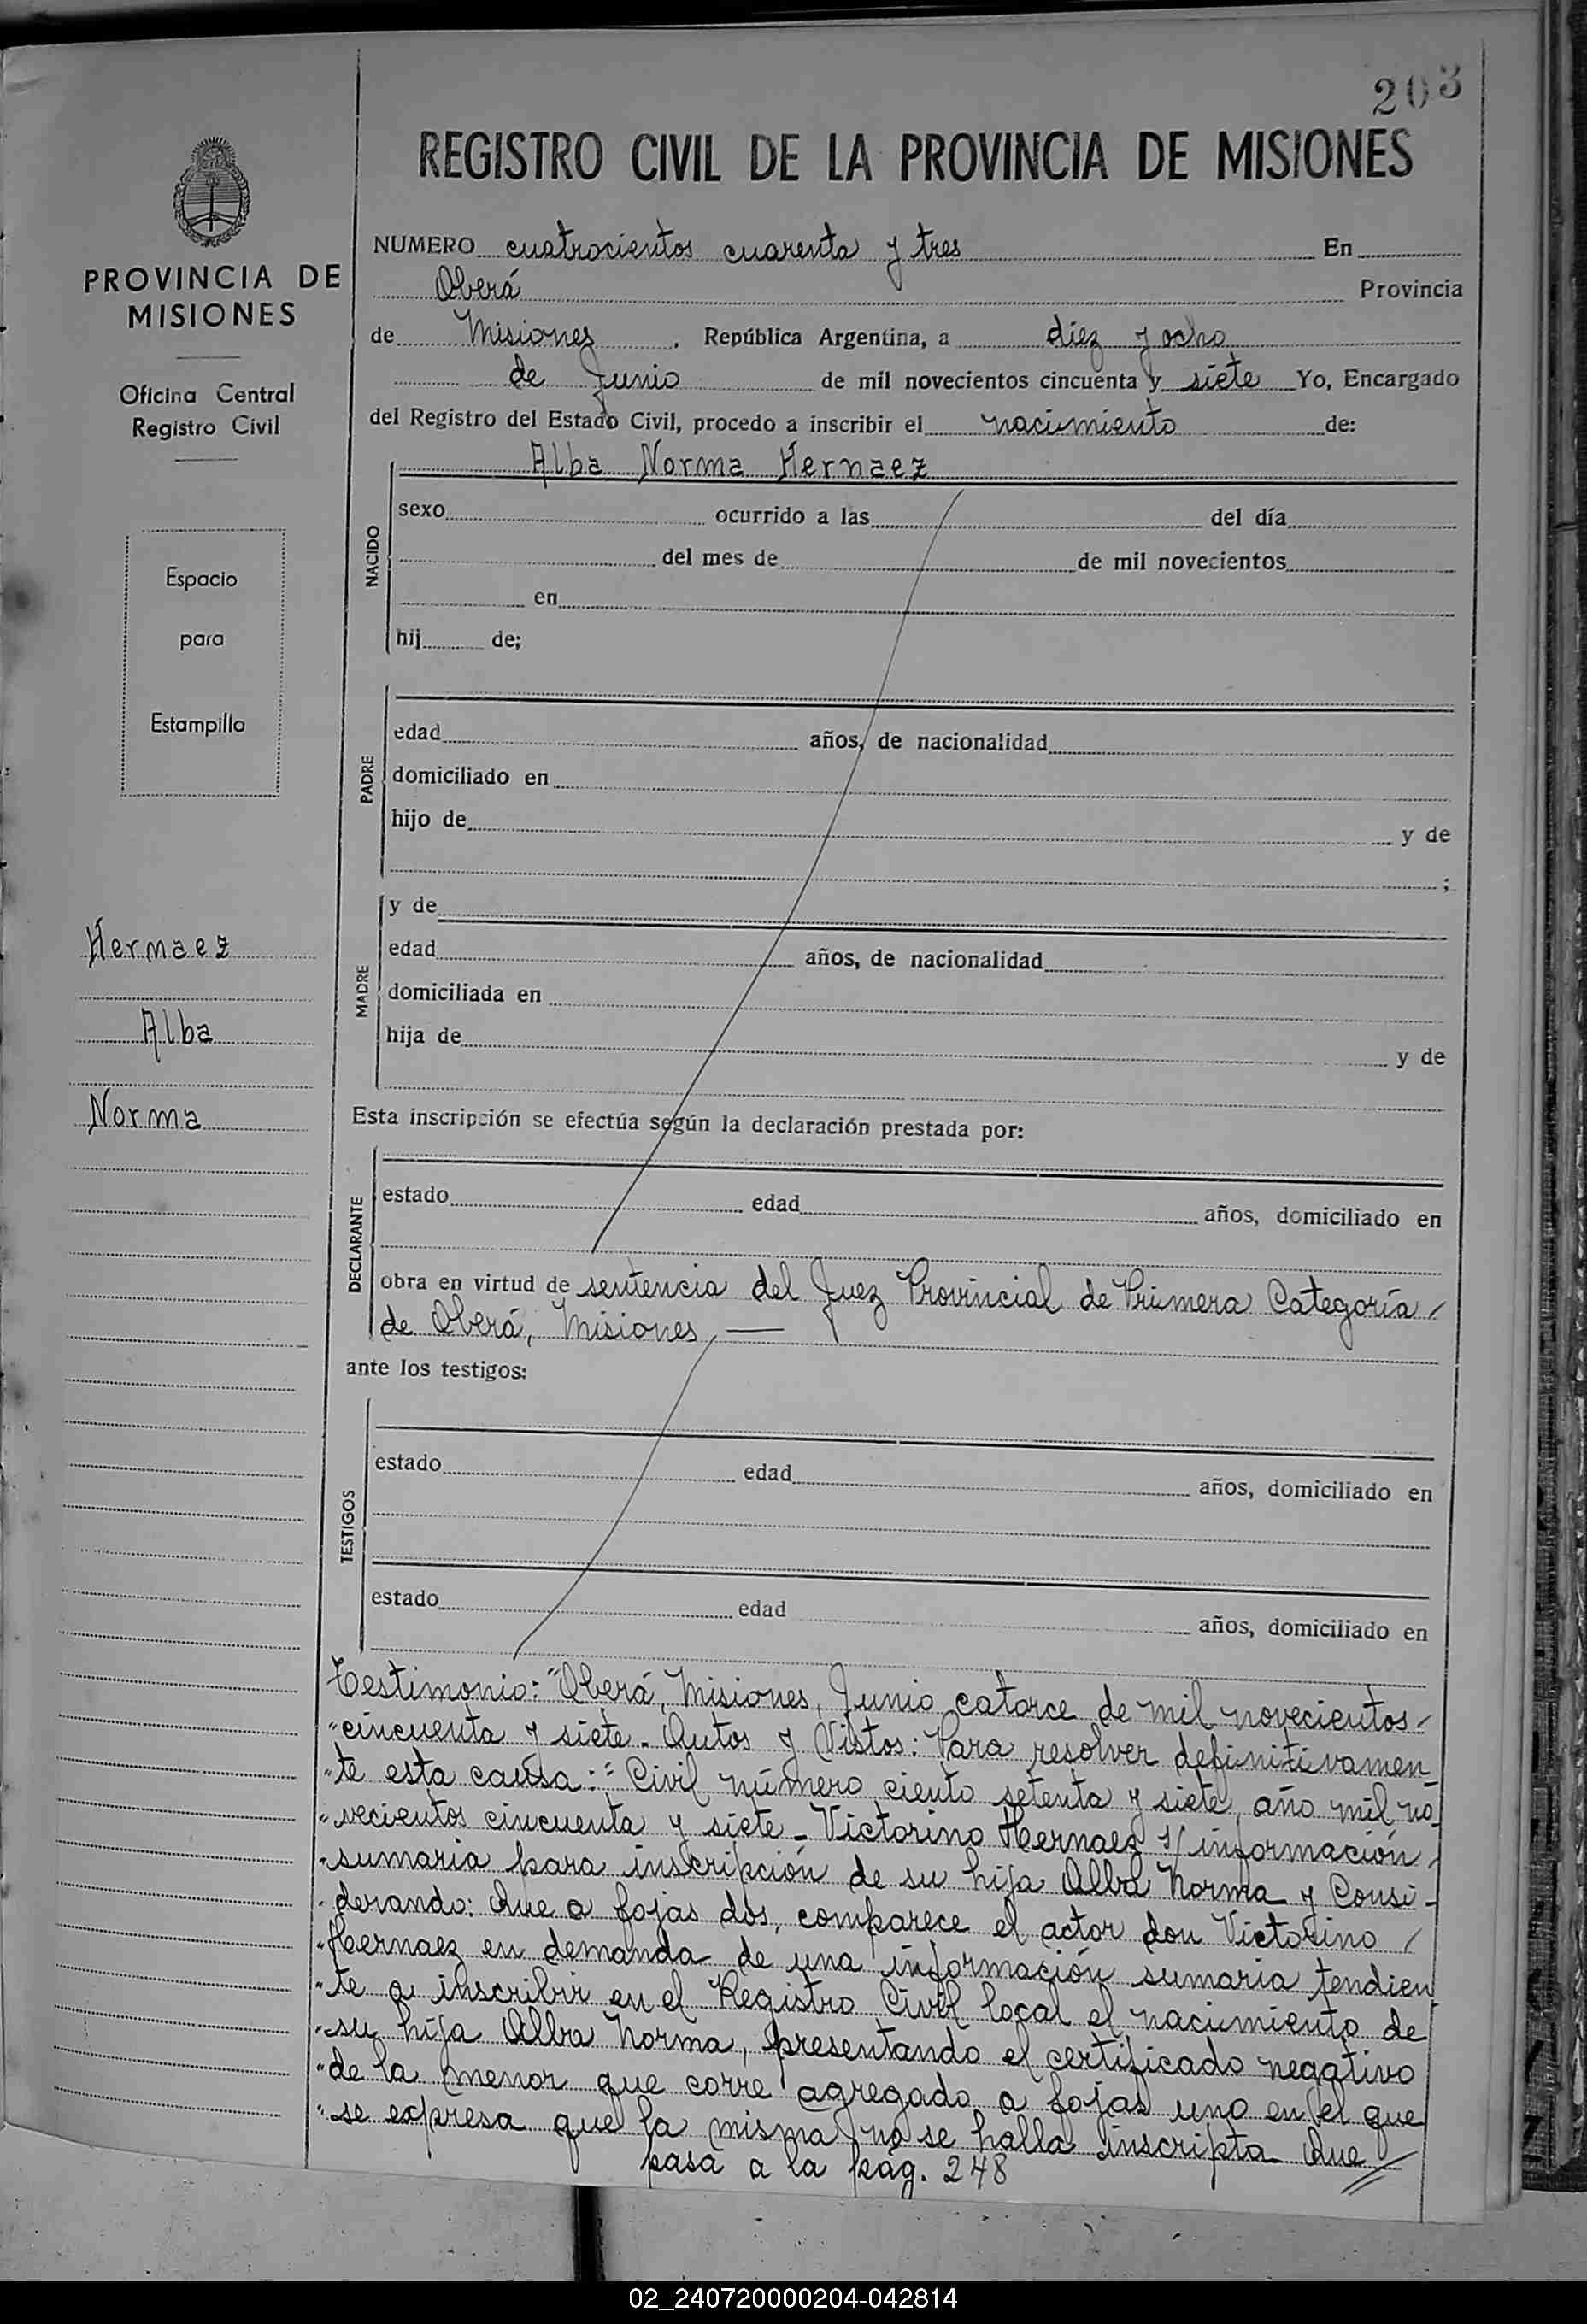 203
REGISTRO CIVIL DE LA PROVINCIA DE MISIONES
PROVINCIA DE
MISIONES
Oficina Central
Registro Civil
Espacio
para
Estampilla
Hernaez
Alba
Norma
NUMERO cuatrocientos cuarenta y tres En
Oberá Provincia
de Misiones, República Argentina, a diez y ocho
de Junio de mil novecientos cincuenta y siete Yo, Encargado
del Registro del Estado Civil, procedo a inscribir el nacimiento de:
Alba Norma Hernaez
NACIDO
sexo ocurrido a las del día
del mes de de mil novecientos
en
hij de;
PADRE
edad años, de nacionalidad
domiciliado en
hijo de y de
;
MADRE
y de
edad años, de nacionalidad
domiciliada en
hija de y de
Esta inscripción se efectúa según la declaración prestada por:
DECLARANTE
estado edad años, domiciliado en
obra en virtud de sentencia del Juez Provincial de Primera Categoría /
de Oberá, Misiones, —
ante los testigos:
TESTIGOS
estado edad años, domiciliado en
estado edad años, domiciliado en
Testimonio: "Oberá, Misiones, Junio catorce de mil novecientos /
"cincuenta y siete. Autos y Vistos: Para resolver definitivamen-
"te esta causa:" Civil número ciento setenta y siete, año mil no-
"vecientos cincuenta y siete - Victorino Hernaez s/ información /
"sumaria para inscripción de su hija Alba Norma y Consi-
"derando: Que a fojas dos, comparece el actor don Victorino /
"Hernaez en demanda de una información sumaria tendien-
"te a inscribir en el Registro Civil local el nacimiento de
"su hija Alba Norma, presentando el certificado negativo
"de la menor que corre agregado a fojas uno en el que
"se expresa que la misma no se halla inscripta Que //
pasa a la pág. 248
02_240720000204-042814